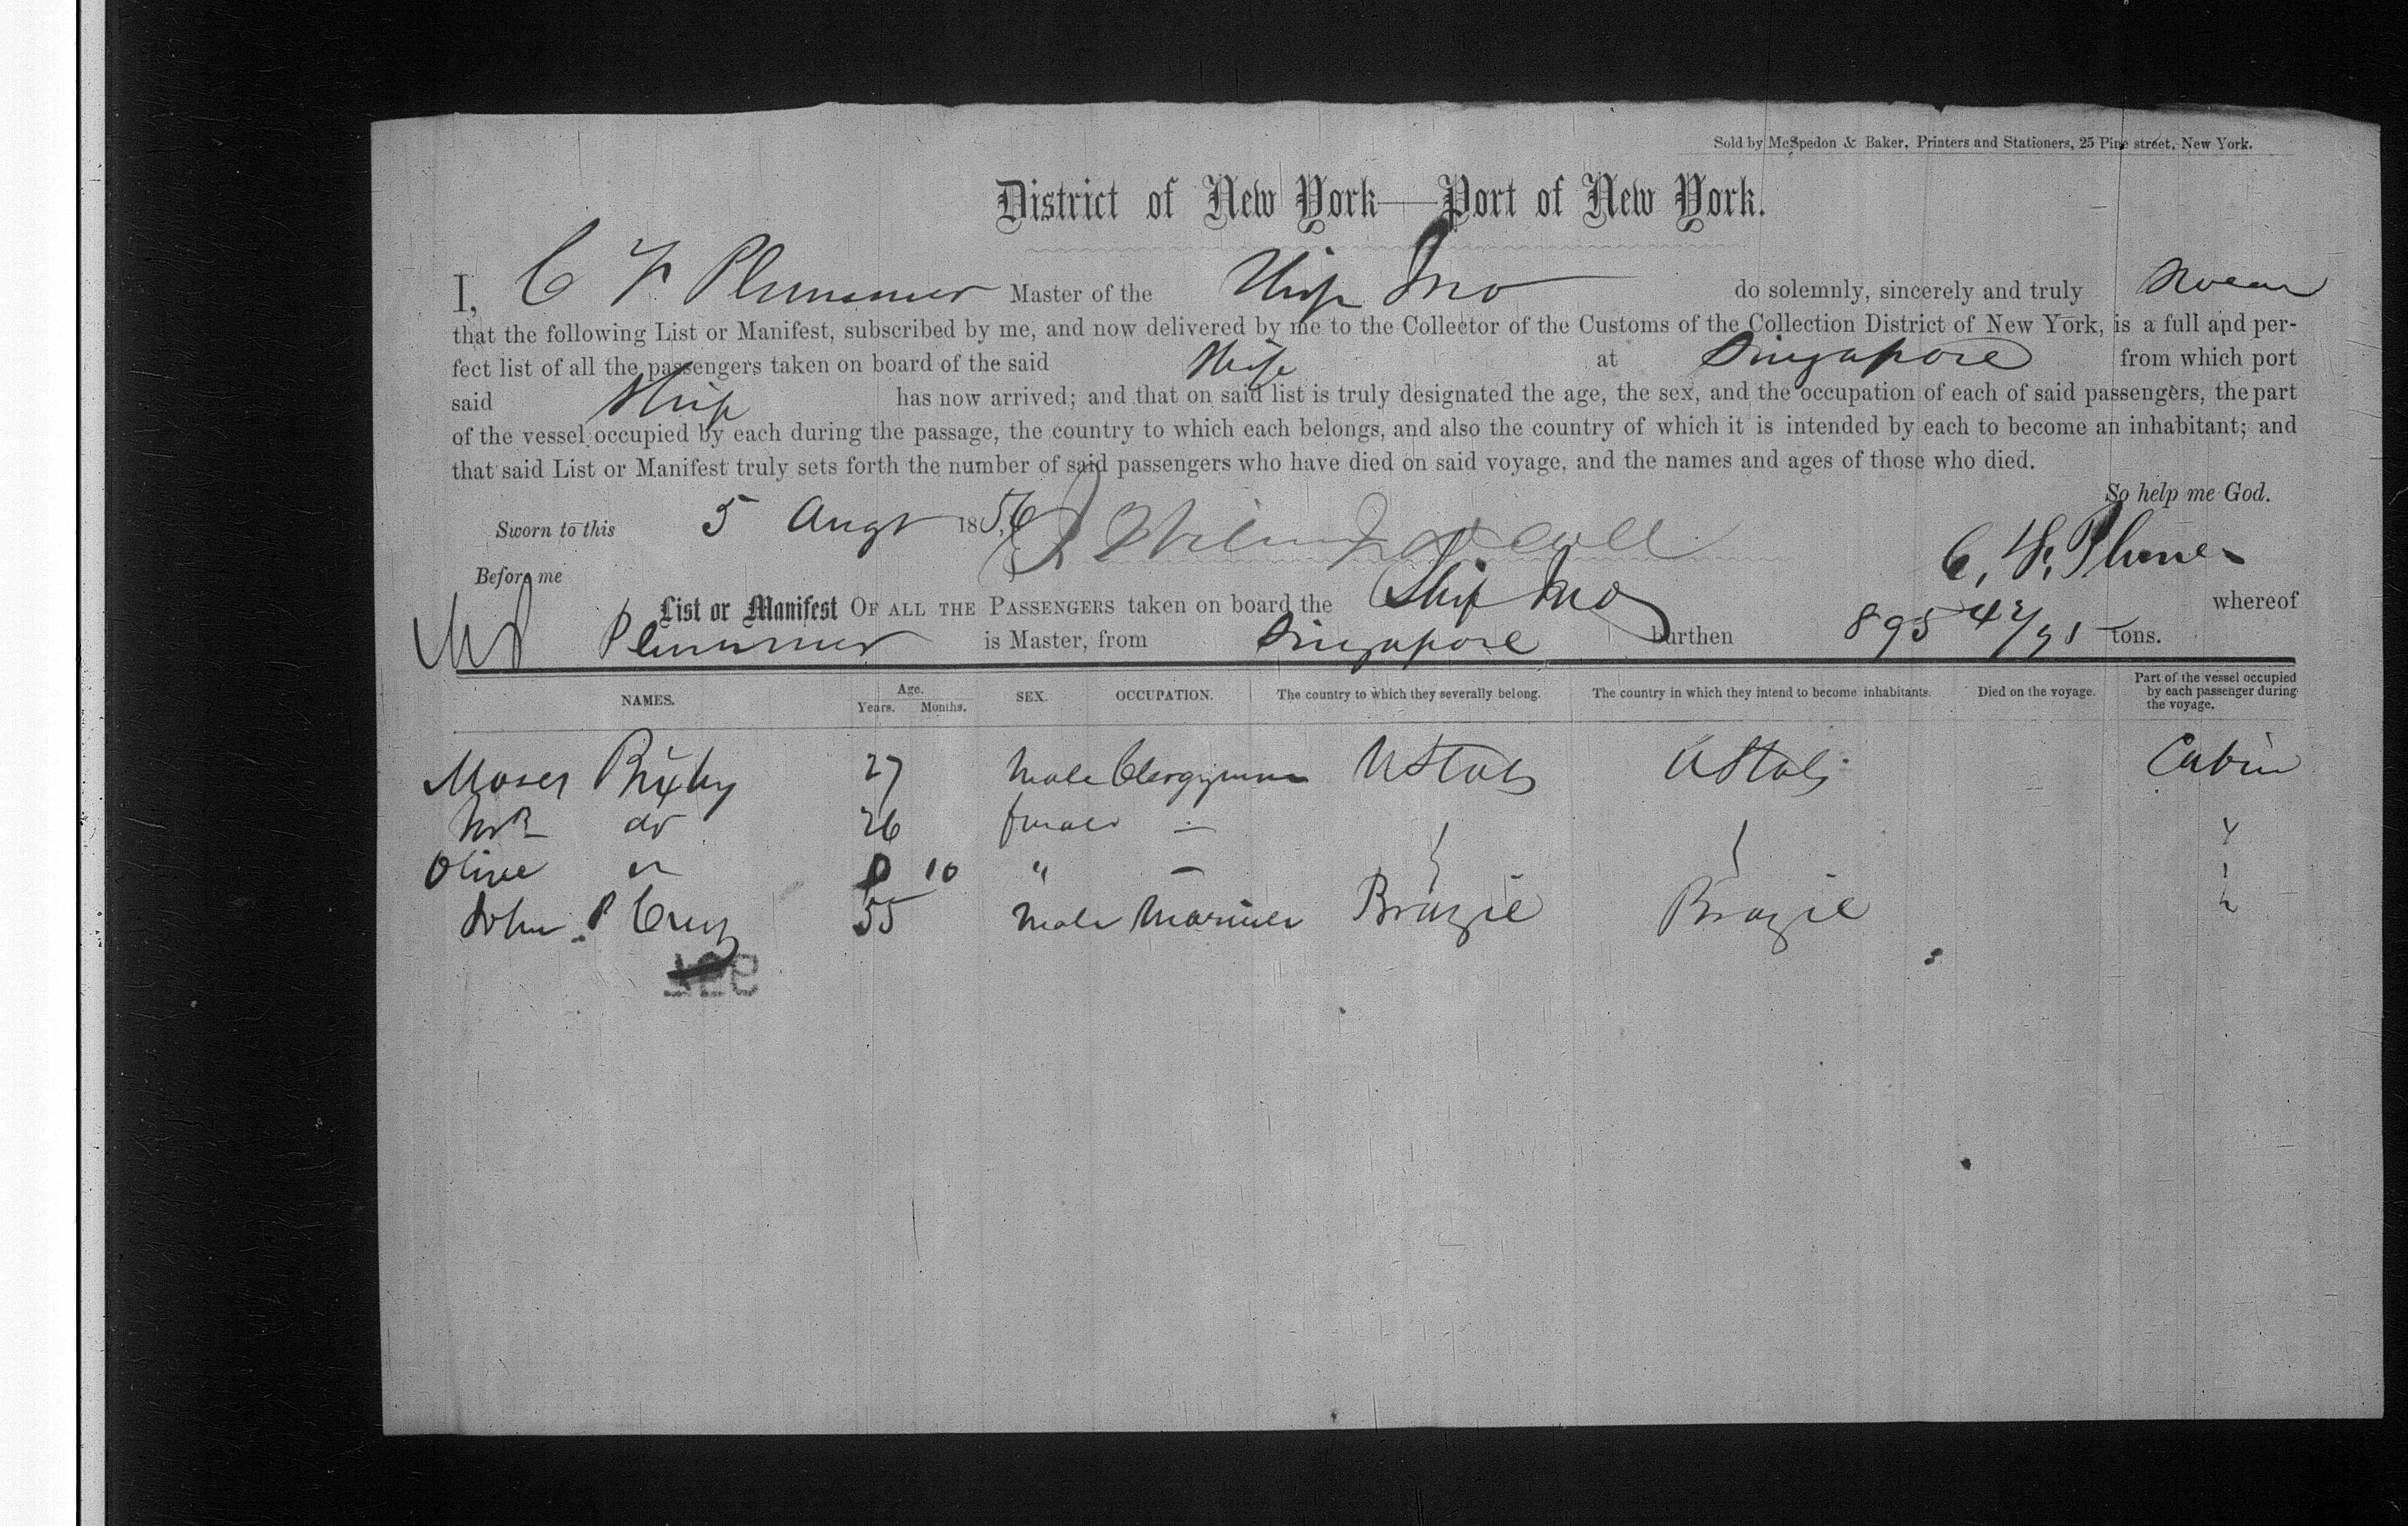 Sold by McSpedon & Baker, Printers and Stationers, 25 Pine street, New York.
District of New York—Port of New York.
I, C F Plummer Master of the Ship Ino do solemnly, sincerely and truly swear
that the following List or Manifest, subscribed by me, and now delivered by me to the Collector of the Customs of the Collection District of New York, is a full and per-
fect list of all the passengers taken on board of the said Ship at Singapore from which port
said Ship has now arrived; and that on said list is truly designated the age, the sex, and the occupation of each of said passengers, the part
of the vessel occupied by each during the passage, the country to which each belongs, and also the country of which it is intended by each to become an inhabitant; and
that said List or Manifest truly sets forth the number of said passengers who have died on said voyage, and the names and ages of those who died.
So help me God.
Sworn to this 5 Augt 1856
Before me
List or Manifest OF ALL THE PASSENGERS taken on board the Ship Ino whereof
Plummer is Master, from Singapore burthen 895 42/95 tons.
NAMES. Age. Years. Months. SEX. OCCUPATION. The country to which they severally belong. The country in which they intend to become inhabitants. Died on the voyage. Part of the vessel occupied by each passenger during the voyage.
Moses Bixby 27 Male Clergyman U States U States Cabin
Mrs do 26 female —
Olive do 0 10 " —
John P Cruz 55 Male Mariner Brazil Brazil